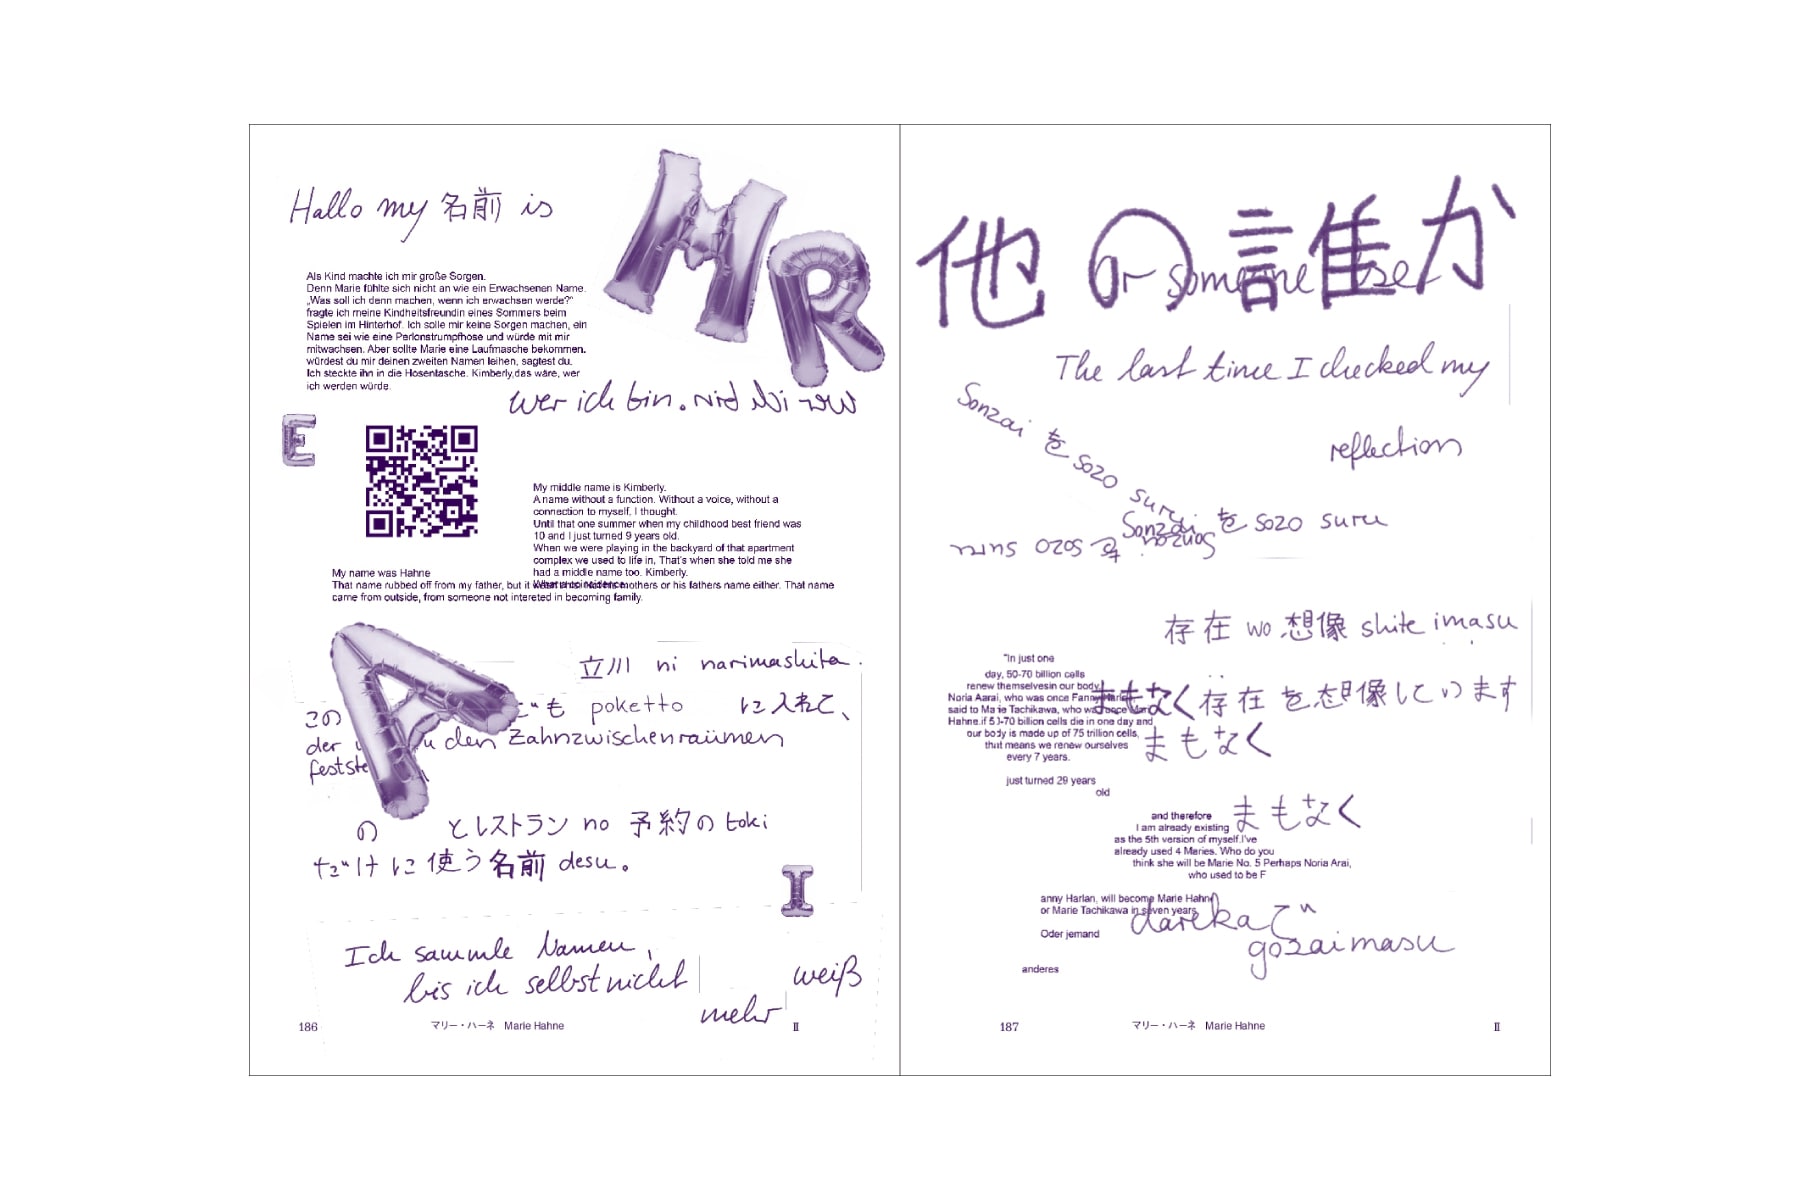 Hallo my 名前 is
M
R
Als Kind machte ich mir große Sorgen.
Denn Marie fühlte sich nicht an wie ein Erwachsenen Name.
„Was soll ich denn machen, wenn ich erwachsen werde?“
fragte ich meine Kindheitsfreundin eines Sommers beim
Spielen im Hinterhof. Ich solle mir keine Sorgen machen, ein
Name sei wie eine Perlonstrumpfhose und würde mit mir
mitwachsen. Aber sollte Marie eine Laufmasche bekommen,
würdest du mir deinen zweiten Namen leihen, sagtest du.
Ich steckte ihn in die Hosentasche. Kimberly,das wäre, wer
ich werden würde.
wer ich bin. wer ich bin
E
My middle name is Kimberly.
A name without a function. Without a voice, without a
connection to myself, I thought.
Until that one summer when my childhood best friend was
10 and I just turned 9 years old.
When we were playing in the backyard of that apartment
complex we used to life in, That's when she told me she
had a middle name too. Kimberly.
What a coincidence.
My name was Hahne
That name rubbed off from my father, but it mothers or his fathers name either. That name
came from outside, from someone not intereted in becoming family.
A
立川 ni narimashita.
この も poketto に入れて、
der den Zahnzwischenräumen
festste
の とレストラン no 予約の toki
だけに使う名前 desu。
I
Ich sammle Namen,
bis ich selbst nicht
mehr weiß
186 マリー・ハーネ Marie Hahne II
他の誰か
Or someone else
The last time I checked my
reflection
Sonzai を sozo suru
Sonzai を sozo suru
Sonzai を sozo suru
存在 wo 想像 shite imasu
"In just one
day, 50-70 billion cells
renew themselvesin our body
Noria Aarai, who was once Fanny
said to Marie Tachikawa, who was once
Hahne.if 50-70 billion cells die in one day and
our body is made up of 75 trillion cells,
that means we renew ourselves
every 7 years.
まもなく存在を想像しています
まもなく
just turned 29 years
old
and therefore
I am already existing
まもなく
as the 5th version of myself.I've
already used 4 Maries. Who do you
think she will be Marie No. 5 Perhaps Noria Arai,
who used to be F
anny Harlan, will become Marie Hahne
or Marie Tachikawa in seven years.
Oder jemand
darekaで
gozaimasu
anderes
187 マリー・ハーネ Marie Hahne II